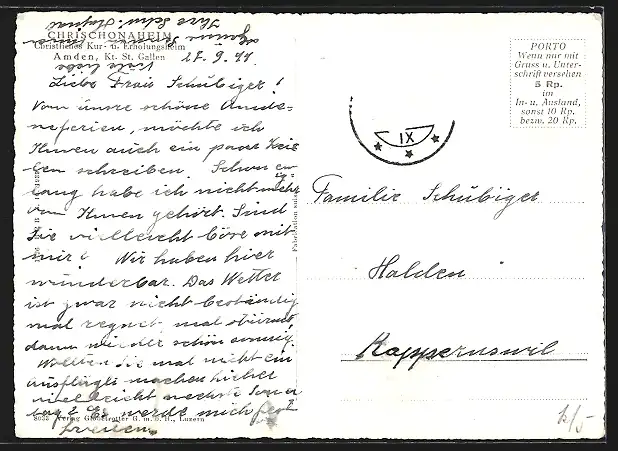 CHRISCHONAHEIM
Christliches Kur- u. Erholungsheim
Amden, Kt. St. Gallen
27.9.
Liebe Frau Schübiger!
Von unsre schöne
ferien, möchte ich
Ihnen auch ein paar Zei
len schreiben. Schon
lang habe ich nicht mehr
von Ihnen gehört. Sind
Sie vielleicht böse mit
mir? Wir haben hier
wunderbar. Das Wetter
ist zwar nicht beständig
mal regnet, mal stürmt
dann wieder schön sonnig.
Wollten Sie mal nicht ein
ausflügli machen hieher
vielleicht nechste Sonn
tag? Es werde mich fest
freuen.
8035 Verlag Globetrotter G. m. b. H., Luzern
PORTO
Wenn nur mit
Gruss u. Unter-
schrift versehen
5 Rp.
im
In- u. Ausland,
sonst 10 Rp.
bezw. 20 Rp.
IX
Familie Schübiger
Halden
Rappernswil